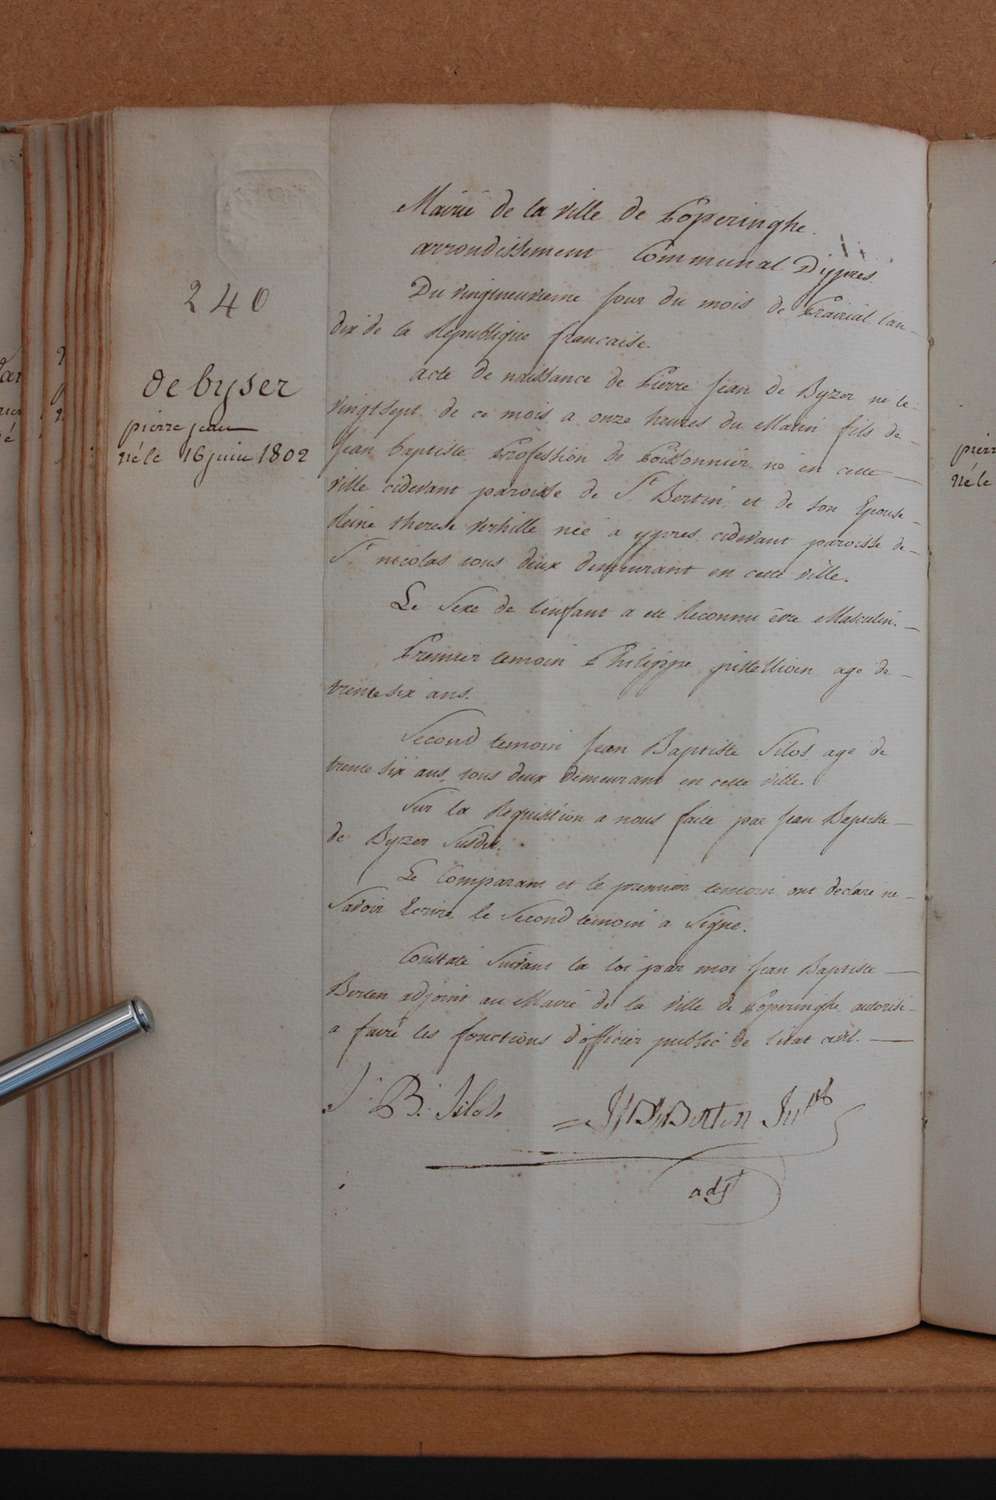 Mairie de la ville de Poperinghe.
arrondissement Communal D'ypres
240
Du vingtneuvieme jour du mois de Prairial l'an
dix de la Republique francaise.
de byser
pierre jean
né le 16 juin 1802
acte de naissance de Pierre Jean de Byzer né le
vingt sept de ce mois a onze heures du Matin fils de
Jean baptiste Profession de Poissonnier né en cette
ville cidevant paroisse de St Bertin et de son Epouse
Reine therese verhille née a ypres cidevant paroisse de
St nicolas tous deux demeurant en cette ville.
Le Sexe de l'enfant a été Reconnu être Masculin.
Premier temoin Philippe agé de
trente six ans.
Second temoin Jean Baptiste Silos agé de
trente six ans, tous deux demeurant en cette ville.
Sur la Requisition a nous faite par Jean Baptiste
de Byzer susdit.
Le Comparant et le premier temoin ont declaré ne
Savoir Ecrire, le Second temoin a Signé.
Constaté Suivant la loi par moi Jean Baptiste
Berten adjoint au Mairie de la ville de Poperinghe autorisé
a faire les fonctions d'officier public de l'etat civil.
J: B: Silos
Berten
adjt
pier
né le